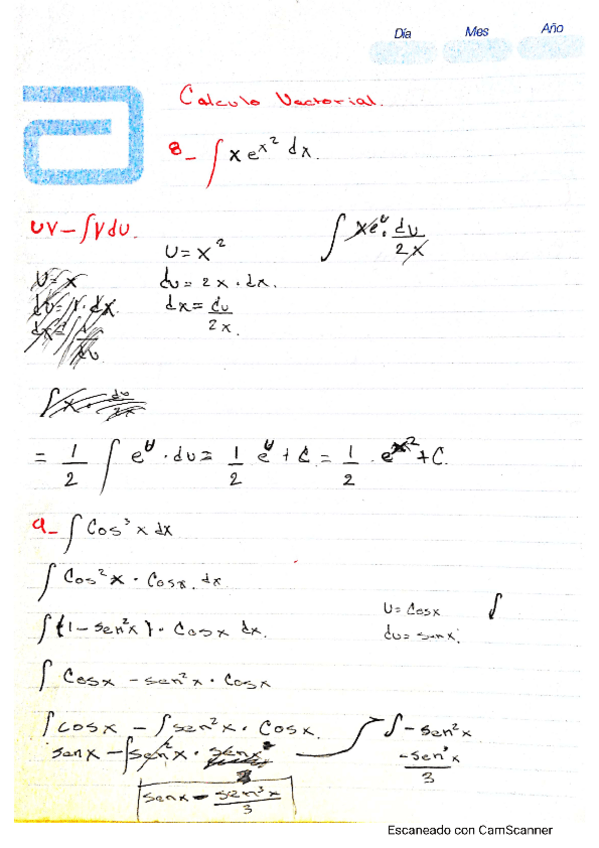 Día Mes Año
Calculo Vectorial.
8- ∫ x e^x² dx.
uv - ∫vdu.
u = x²
∫ xe^u · du/2x
du = 2x · dx.
dx = du/2x.
= 1/2 ∫ e^u · du = 1/2 e^u + C = 1/2 · e^x² + C.
9- ∫ Cos³ x dx
∫ Cos² x · Cosx. dx
∫ (1 - sen²x) · Cosx dx.
u = Cosx ∫
du = senx.
∫ Cosx - sen²x · Cosx
∫ cosx - ∫ sen²x · Cosx.
∫ - sen²x
senx - ∫ sen²x ·
-sen³x/3
senx - sen³x/3
Escaneado con CamScanner